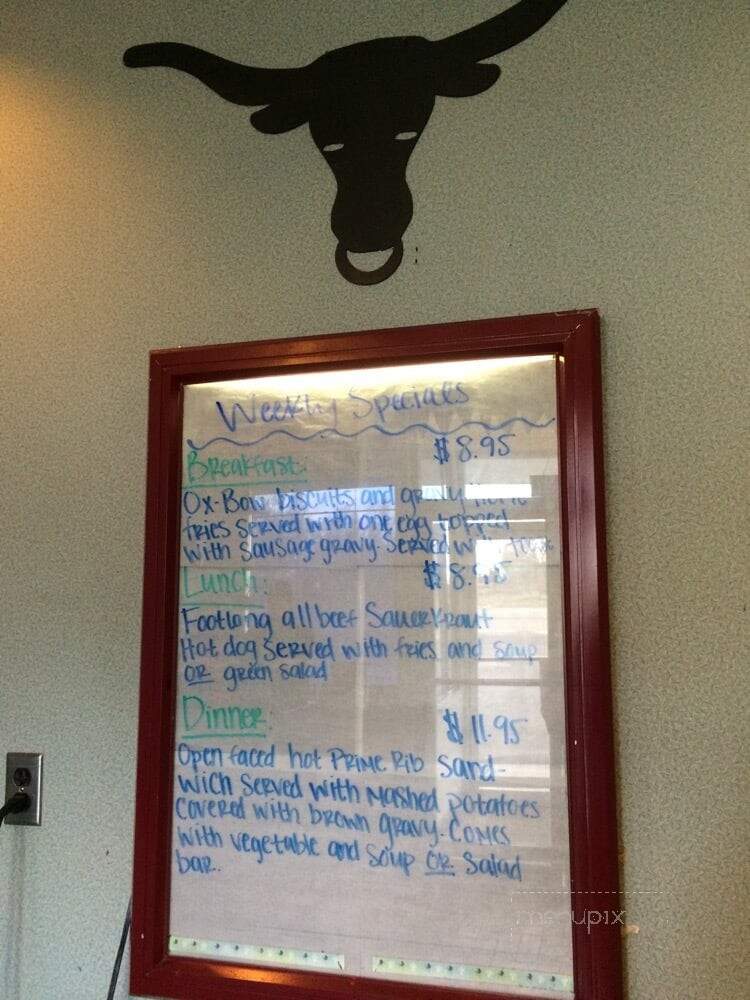 Weekly Specials
$8.95
Breakfast:
Ox-Bow biscuits and gravy, home
fries served with one egg topped
with sausage gravy. Served w toast
Lunch:
$8.95
Footlong all beef SauerKraut
Hot dog served with fries and soup
OR green salad
Dinner:
$11.95
Open faced hot PRIME RIB Sand-
wich served with mashed potatoes
covered with brown gravy. Comes
with vegetable and soup OR Salad
bar.
menupix